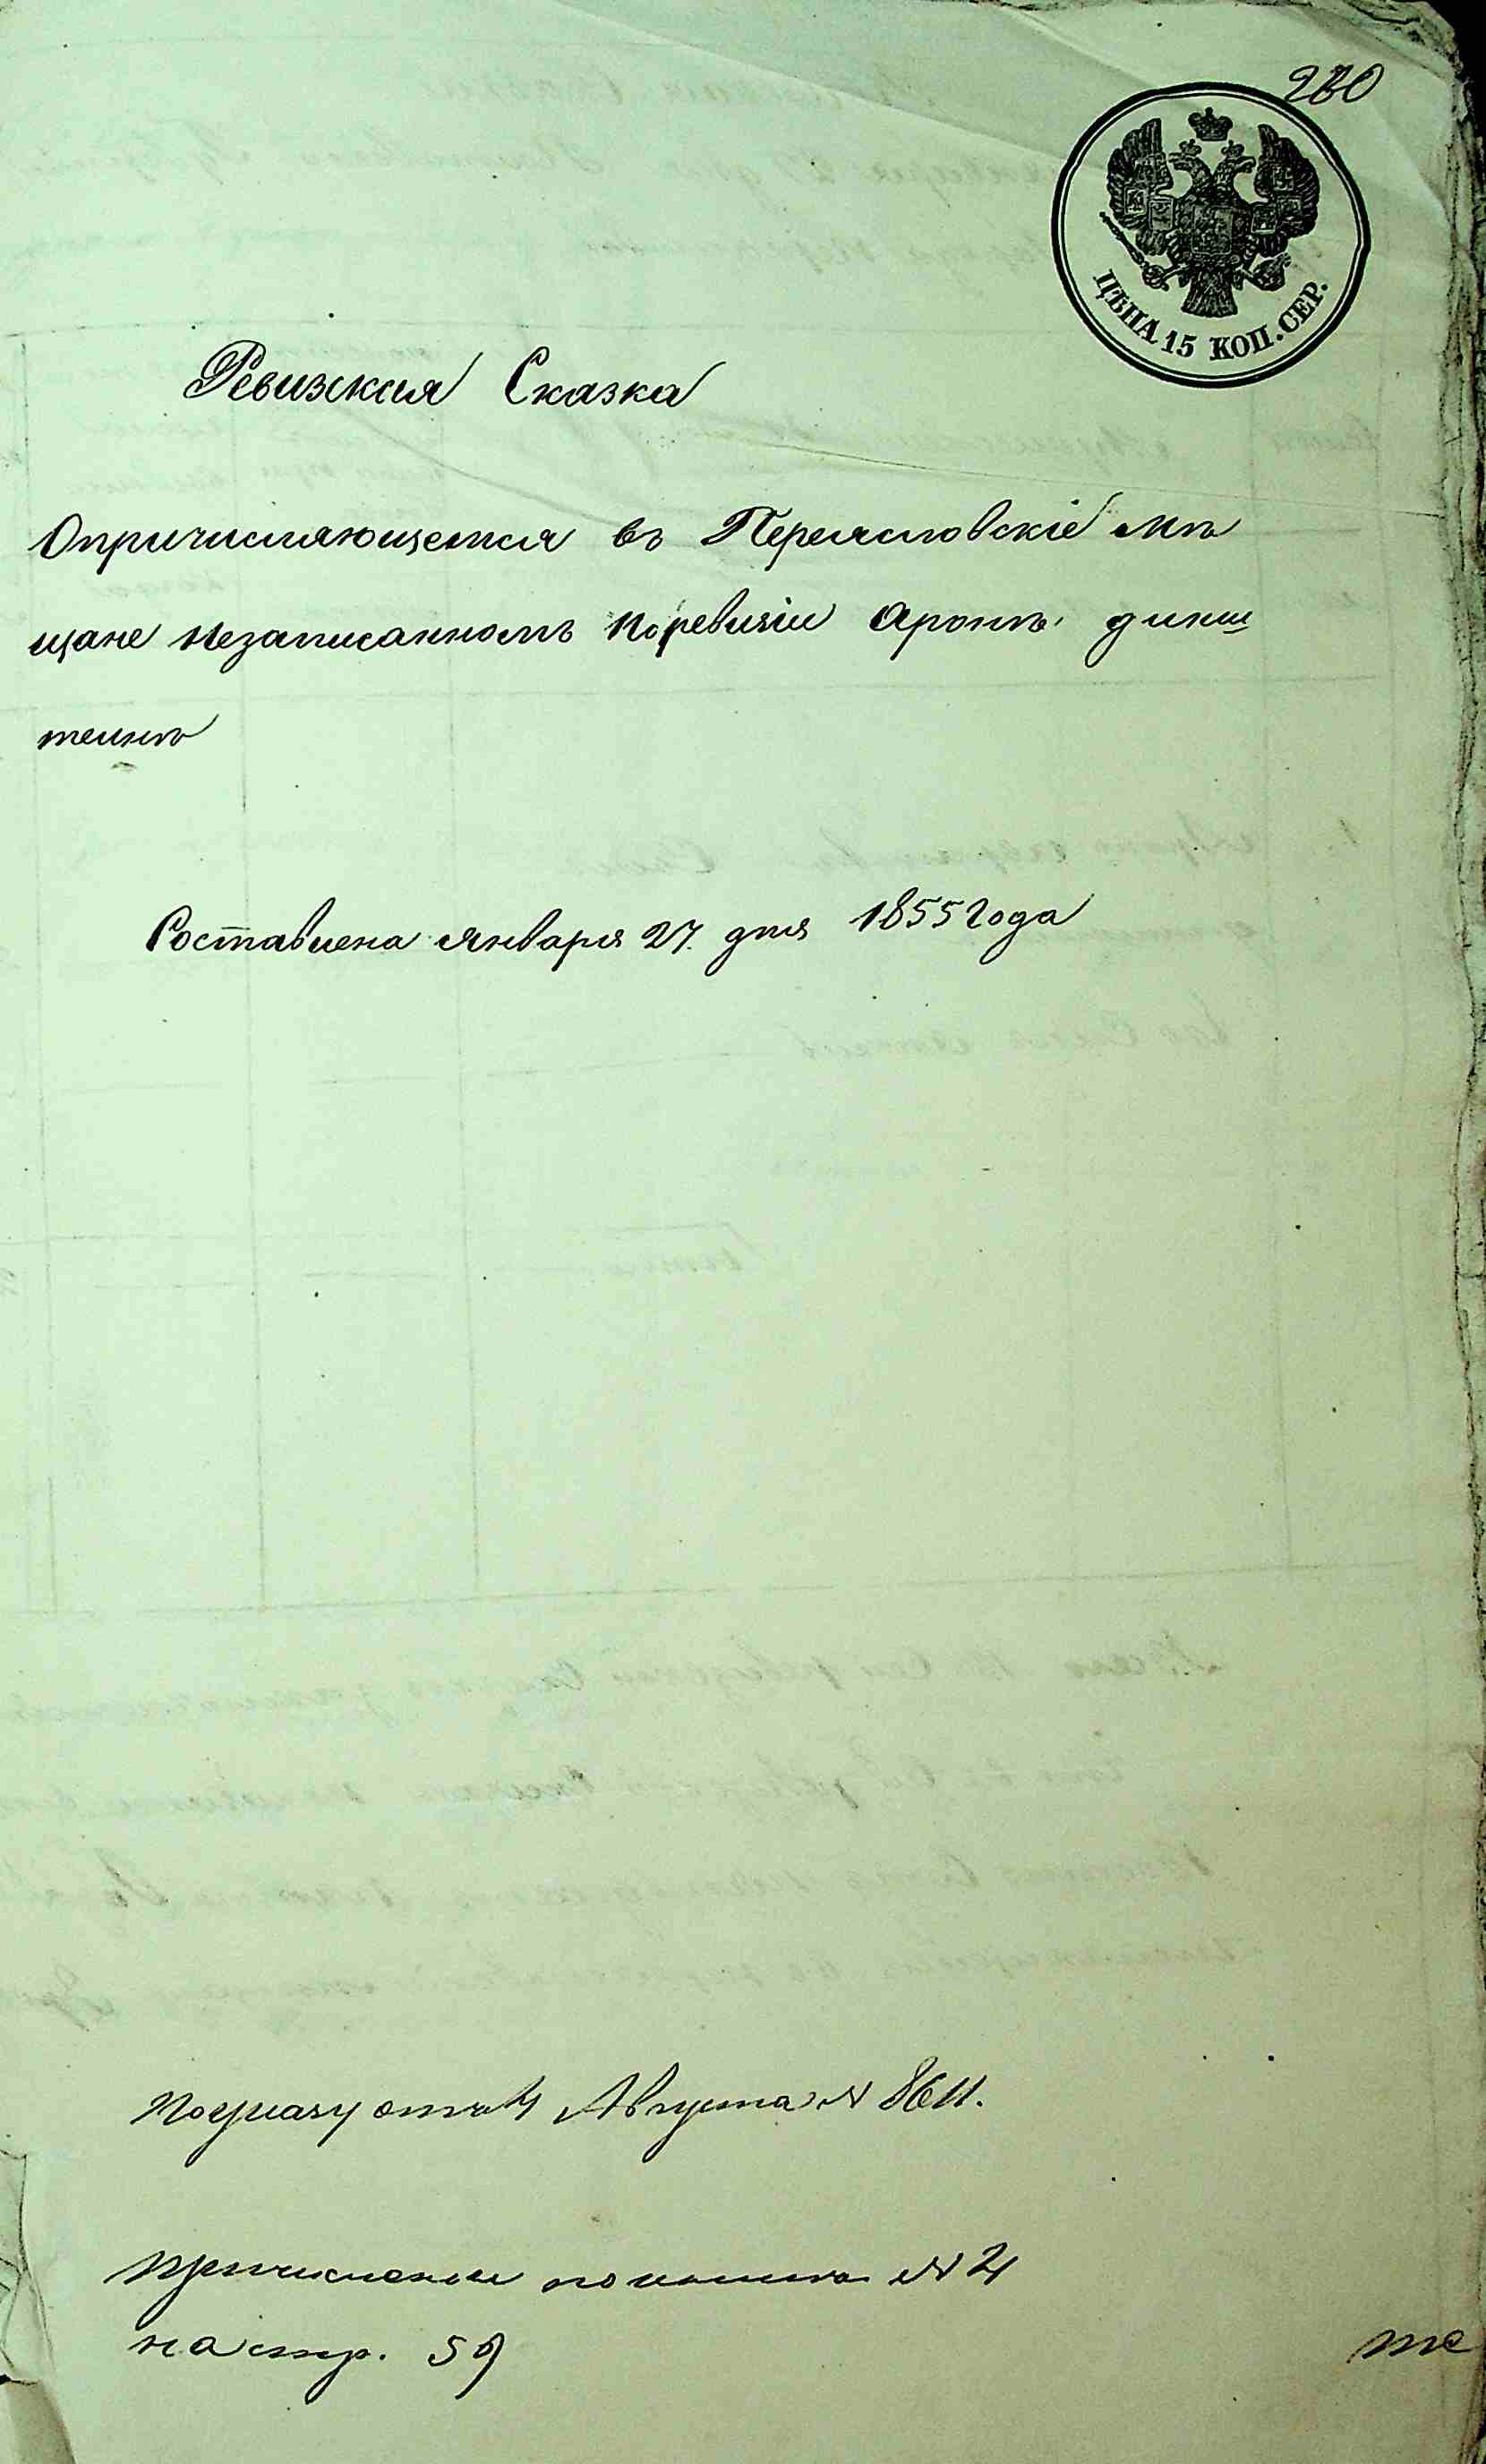 280
ЦѢНА 15 КОП. СЕР.
Ревизкая Сказка
Опричисляющемся въ Переясловскіе мѣ
щане незаписанномъ поревизіи Аронѣ динш
теинѣ
Составлена января 27. дня 1855 года
Поуказу отъ 4 Августа N 8611.
причислены по книгѣ N 2
на стр. 59
те